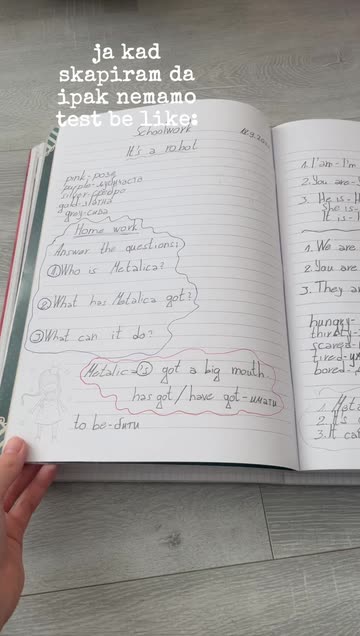 ja kad
skapiram da
ipak nemamo
test be like:
Schoolwork
It's a robot
pink-розе
gold-златна
grey-сива
Home work:
Answer the questions:
① Who is Metalica?
② What has Metalica got?
③ What can it do?
Metalica's got a big mouth.
has got/have got-имати
to be-бити
1. I am-I'm
2. You are-
3. He is-H
She is-
It is-
1. We are
2. You are
3. They ar
hungry-
thirsty-
scared-
tired-
bored-